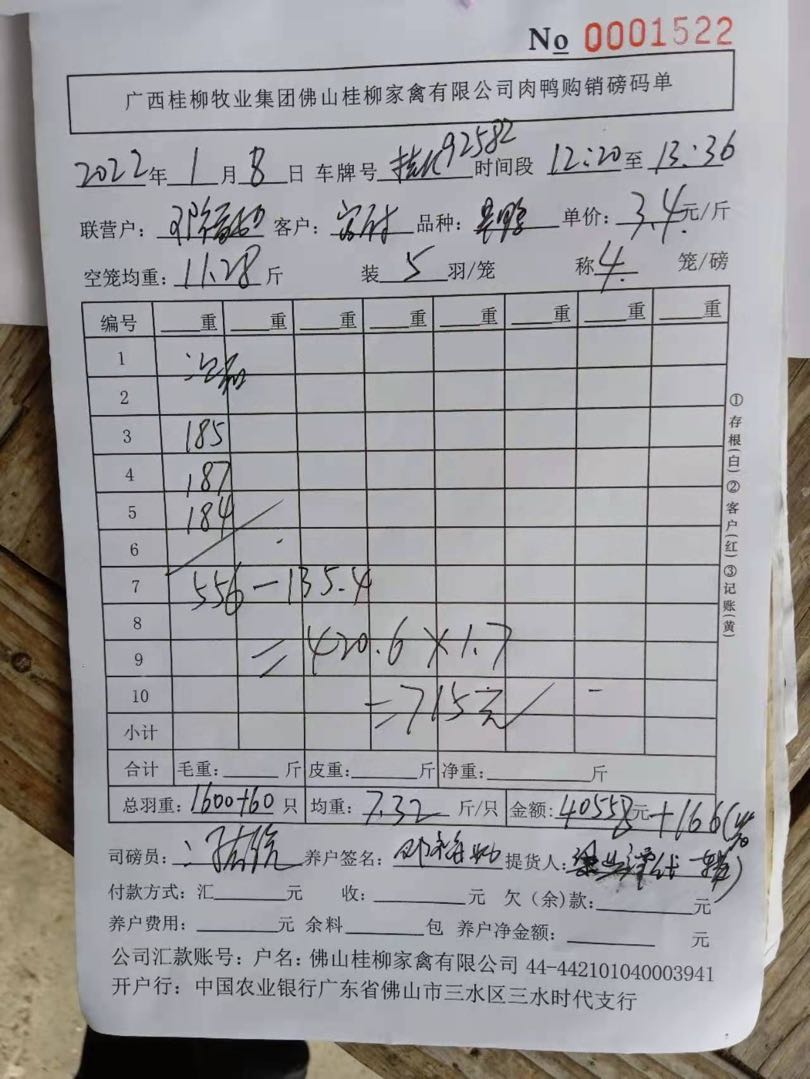 No 0001522
广西桂柳牧业集团佛山桂柳家禽有限公司肉鸭购销磅码单
2022年1月8日 车牌号 92582 时间段 12:20至13:36
联营户: 客户: 品种: 单价: 3.4元/斤
空笼均重: 11.28斤 装5羽/笼 称4.笼/磅
编号 重 重 重 重 重 重 重 重
1
2
3 185
4 187
5 184
6
7 556-135.4
8
9 =420.6×1.7
10 =715元
小计
合计 毛重: 斤 皮重: 斤 净重: 斤
总羽重: 1600+60只 均重: 7.32斤/只 金额: 40558元+166
司磅员: 养户签名: 提货人:
付款方式: 汇 元 收: 元 欠(余)款: 元
养户费用: 元 余料 包 养户净金额: 元
公司汇款账号: 户名: 佛山桂柳家禽有限公司 44-442101040003941
开户行: 中国农业银行广东省佛山市三水区三水时代支行
①存根(白)②客户(红)③记账(黄)